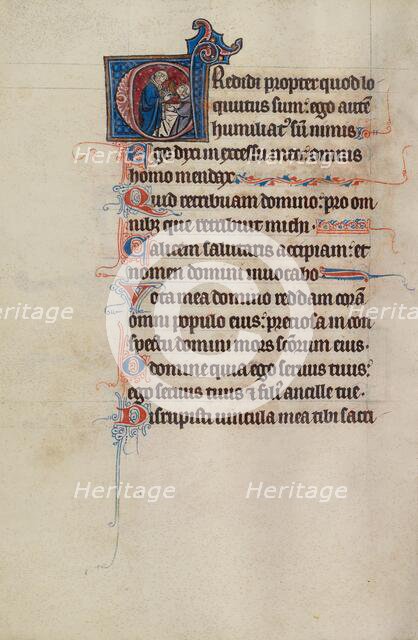 Credidi propter quod lo
quutus sum: ego autē
humiliat' sū nimis.
Ego dixi in excessu meo: omnis
homo mendax.
Quid retribuam domino: pro om
nibȝ que retribuit michi.
Calicem salutaris accipiam: et
nomen domini inuocabo.
Vota mea domino reddam corā
omni populo eius: preciosa in con
spectu domini mors sc̄orum eius.
O domine quia ego seruus tuus:
ego seruus tuus & fili' ancille tue.
Disrupisti uincula mea tibi sacri
Heritage Heritage
Heritage Heritage
Heritage Heritage